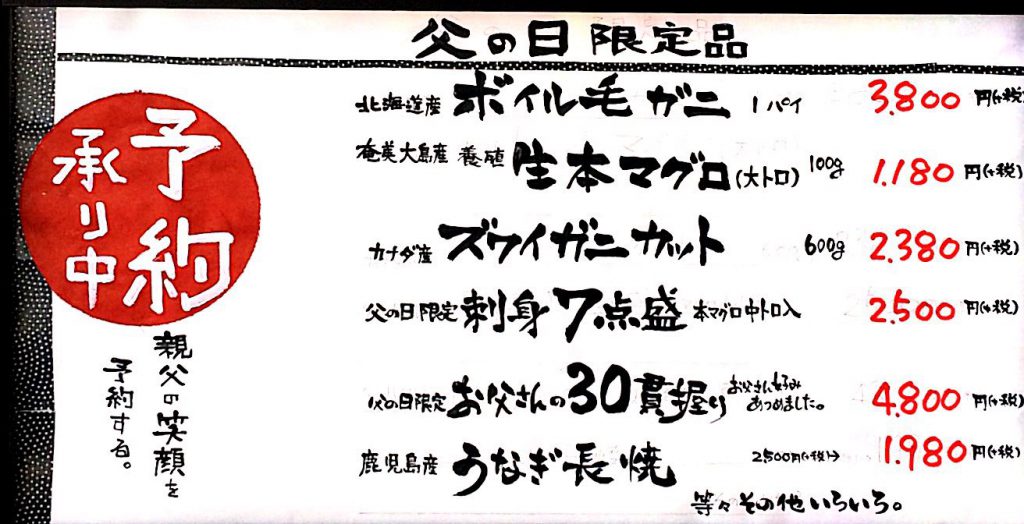 父の日限定品
予約
承り中
親父の笑顔を
予約する。
北海道産 ボイル毛ガニ 1パイ 3.800円(+税)
奄美大島産 養殖 生本マグロ(大トロ) 100g 1.180円(+税)
カナダ産 ズワイガニカット 600g 2.380円(+税)
父の日限定 刺身7点盛 本マグロ中トロ入 2.500円(+税)
父の日限定 お父さんの30貫握り お父さん好み あつめました。 4.800円(+税)
鹿児島産 うなぎ長焼 2500円(+税)→ 1.980円(+税)
等々その他いろいろ。